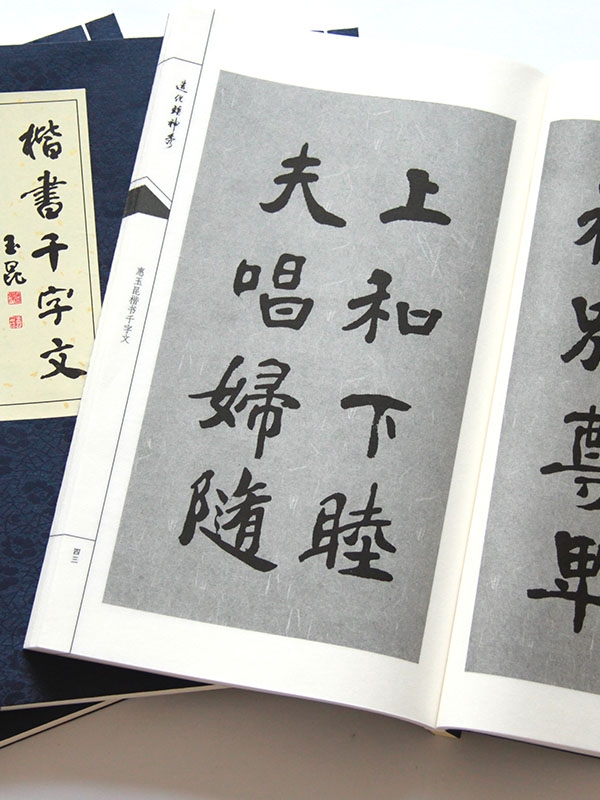 楷書千字文
玉昆
造化钟神秀
惠玉昆楷书千字文
四三
上和下睦
夫唱婦隨
别尊卑